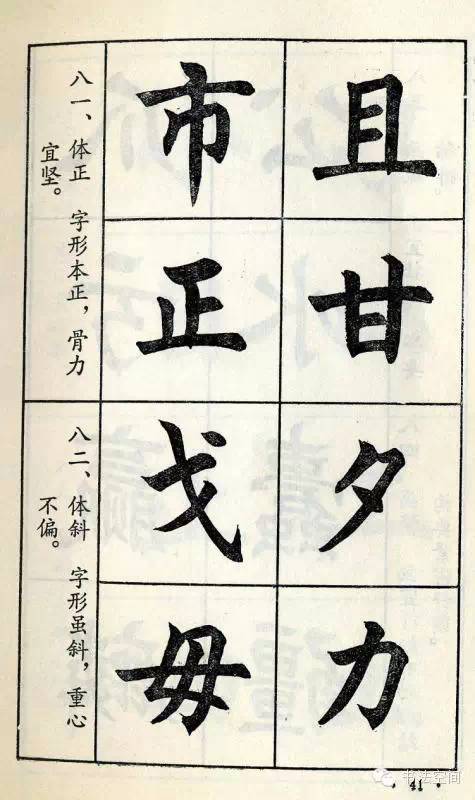 且甘夕力
市正戈毋
八一、体正 字形本正，骨力
宜坚。
八二、体斜 字形虽斜，重心
不偏。
· 41 ·
书法空间